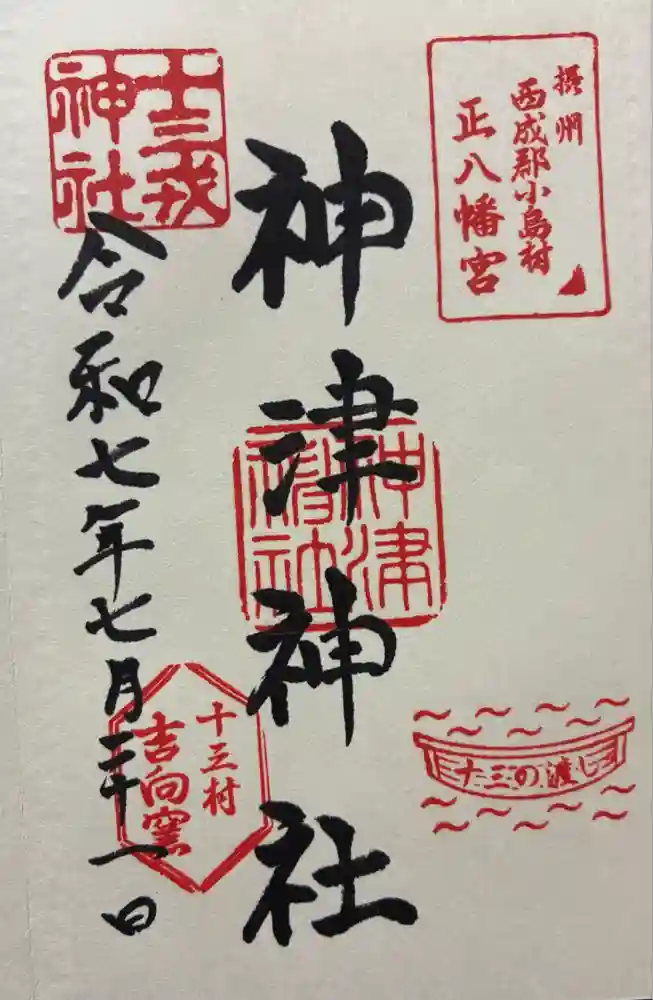 摂州
西成郡小島村
正八幡宮
神津神社
神津
神社
十三戎
神社
令和七年七月二十一日
十三村
吉向窯
十三の渡し